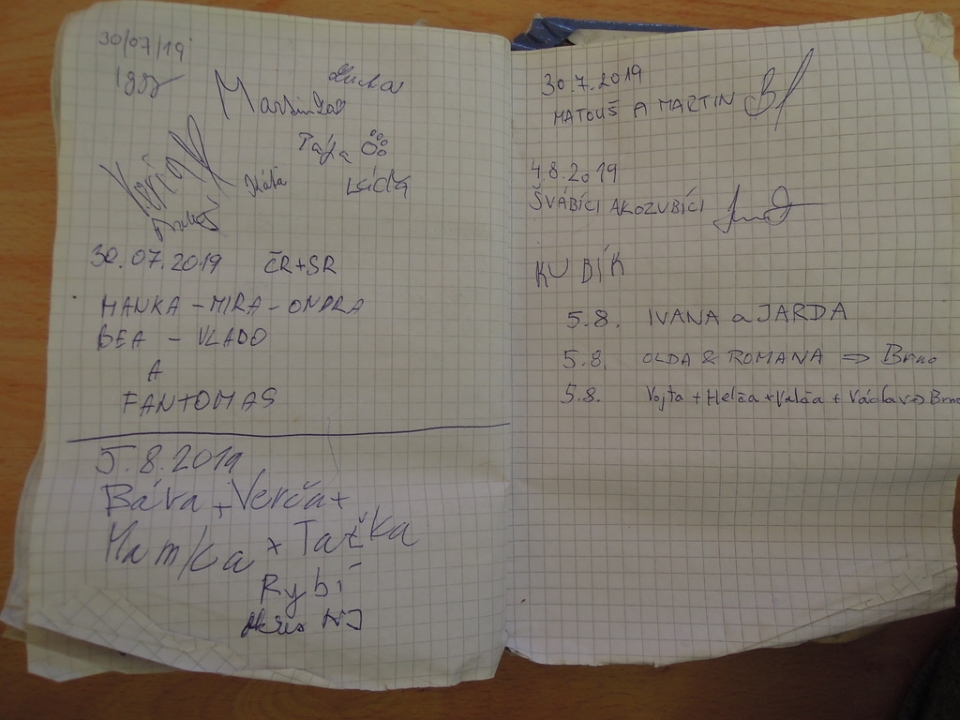 30/07/19
Martin
Táňa
Láďa
30.07.2019 ČR+SR
HANKA - MIRA - ONDRA
BEA - VLADO
A
FANTOMAS
5.8.2019
Bára + Verča +
Mamka + Taťka
Rybí
okres NJ
30.7.2019
MATOUŠ A MARTIN
4.8.2019
ŠVÁBÍCI A KOZUBÍCI
KUBÍK
5.8. IVANA a JARDA
5.8. OLDA & ROMANA => Brno
5.8. Vojta + Helča + Valča + Václav => Brno